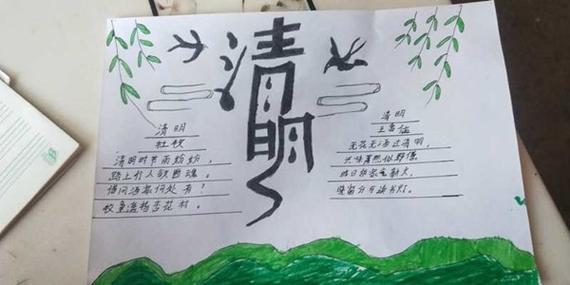 清明
清明
杜牧
清明时节雨纷纷，
路上行人欲断魂。
借问酒家何处有？
牧童遥指杏花村。
清明
王禹偁
无花无酒过清明，
兴味萧然似野僧
昨日邻家乞新火，
晓窗分与读书灯。